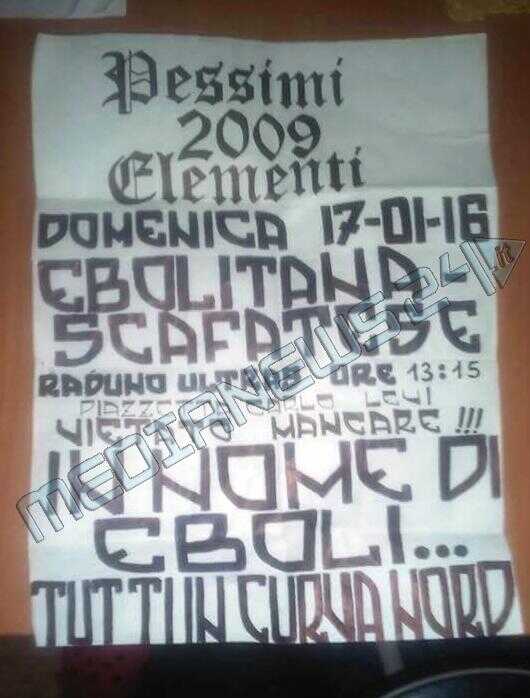 Pessimi
2009
Elementi
DOMENICA 17-01-16
EBOLITANA-
SCAFATESE
RADUNO ULTRAS ORE 13:15
PIAZZETTA CARLO LEVI
VIETATO MANCARE !!!
IN NOME DI
EBOLI...
TUTTI IN CURVA NORD
MEDIANEWS24.it